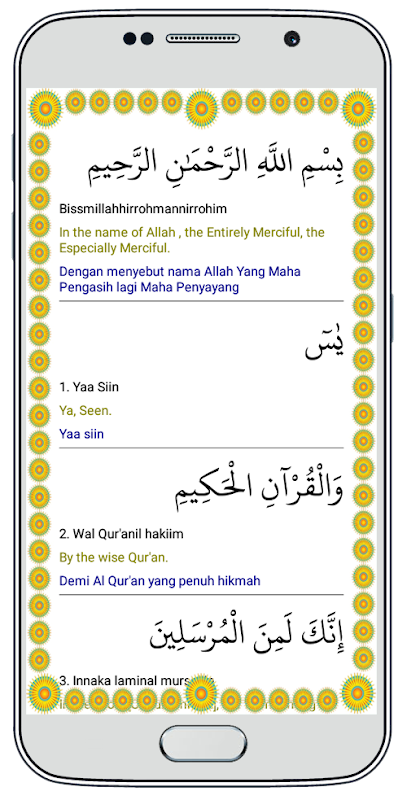 بِسْمِ اللَّهِ الرَّحْمَٰنِ الرَّحِيمِ
Bissmillahhirrohmannirrohim
In the name of Allah , the Entirely Merciful, the
Especially Merciful.
Dengan menyebut nama Allah Yang Maha
Pengasih lagi Maha Penyayang
يٰسٓ
1. Yaa Siin
Ya, Seen.
Yaa siin
وَالْقُرْآنِ الْحَكِيمِ
2. Wal Qur'anil hakiim
By the wise Qur'an.
Demi Al Qur'an yang penuh hikmah
إِنَّكَ لَمِنَ الْمُرْسَلِينَ
3. Innaka laminal